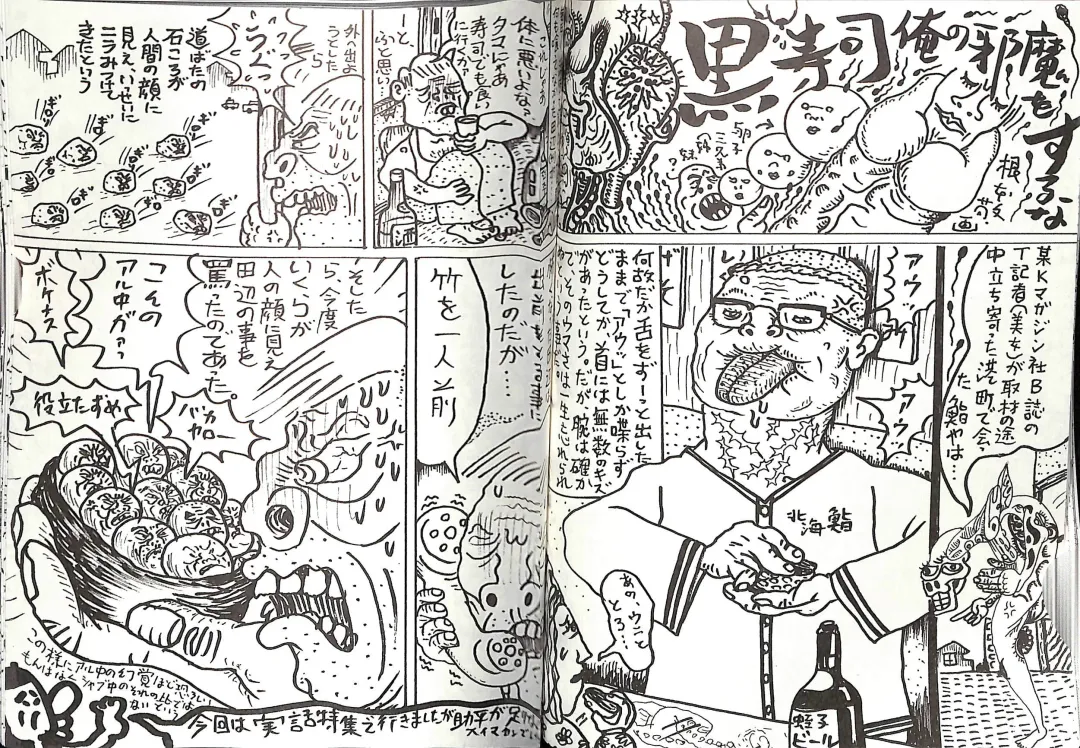 俺の邪魔をするな
黒寿司
根本敬
画
卵子
某Kマガジン社B誌の
T記者(美女)が取材の途
中立ち寄った港町で会
った鮨やは…
アウッ
アウッ
何故だか舌をずーっと出した
ままで「アウッ」としか喋らず
どうしてか首には無数のキズ
があったという。だが腕は確か
で、そのウマさは一生忘れられ
北海鮨
あの、ウニと
とろ…
蛭子
ビール
体に悪いよな。
タマにゃあ
寿司でも食い
に行くか?
ーと、
ふと思い
酒
外へ出よ
うとした
ら
道ばたの
石ころが
人間の顔に
見え、いっせいに
ニラみつけて
きたという
ぎ
ロ
ぎ
ロ
したのだが…
竹を一人前
そした
ら、今度
いくらが
人の顔に見え
田辺の事を
罵ったのであった。
このォ
アル中がァっ
ボケナス
役立たずめ
バカ
ヤロー
この様にアル中の幻覚ほど恐ろしい
もんはなく
シャブ中のそれの
ないという
今回は「実」話特集で行きましたが助平が足りん
スイマセンでし